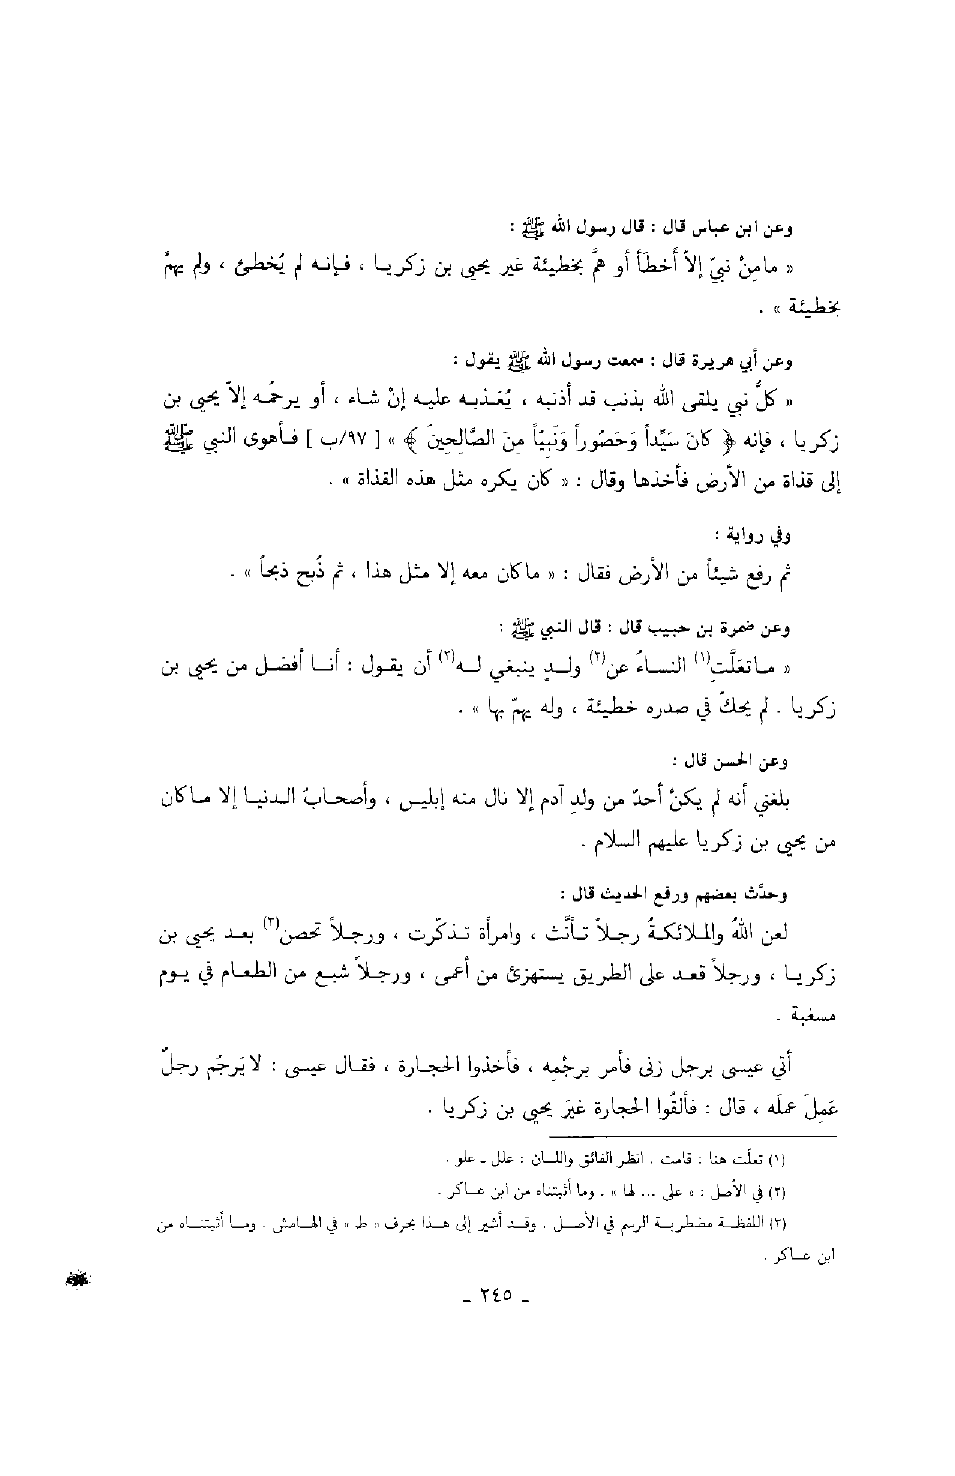 وعن ابن عباس قال : قال رسول الله ﷺ :
« مامِنْ نبيّ إلاّ أَخطَأ أو همَّ بخطيئة غير يحيى بن زكريا ، فإنه لم يُخطئ ، ولم يهمَّ
بخطيئة » .
وعن أبي هريرة قال : سمعت رسول الله ﷺ يقول :
« كلُّ نبي يلقى الله بذنب قد أذنبه ، يُعَذبه عليه إنْ شاء ، أو يرحمُه إلاّ يحيى بن
زكريا ، فإنه ﴿ كانَ سَيِّداً وَحَصُوراً وَنَبِيّاً مِنَ الصَّالِحِينَ ﴾ » [ ٩٧/ب ] فأهوى النبي ﷺ
إلى قذاة من الأرض فأخذها وقال : « كان يكره مثل هذه القذاة » .
وفي رواية :
ثم رفع شيئاً من الأرض فقال : « ماكان معه إلا مثل هذا ، ثم ذُبح ذبحاً » .
وعن ضمرة بن حبيب قال : قال النبي ﷺ :
« ماتعَلَّتِ(١) النساءُ عن(٢) ولدٍ ينبغي له(٢) أن يقول : أنا أفضل من يحيى بن
زكريا . لم يحكّ في صدره خطيئة ، وله يهمّ بها » .
وعن الحسن قال :
بلغني أنه لم يكنْ أحدٌ من ولدِ آدم إلا نال منه إبليس ، وأصحابُ الدنيا إلا ماكان
من يحيى بن زكريا عليهم السلام .
وحدَّث بعضهم ورفع الحديث قال :
لعن اللهُ والملائكةُ رجلاً تأنَّث ، وامرأة تذكّرت ، ورجلاً تحصن(٣) بعد يحيى بن
زكريا ، ورجلاً قعد على الطريق يستهزئ من أعمى ، ورجلاً شبع من الطعام في يوم
مسغبة .
أُتي عيسى برجل زنى فأمر برجْمِه ، فأخذوا الحجارة ، فقال عيسى : لا يَرجُم رجلٌ
عَمِلَ عملَه ، قال : فألقُوا الحجارة غيرَ يحيى بن زكريا .
(١) تعلّت هنا : قامت . انظر الفائق واللسان : علل ـ علو .
(٢) في الأصل : « على ... لها » . وما أثبتناه من ابن عساكر .
(٣) اللفظة مضطربة الرسم في الأصل . وقد أشير إلى هذا بحرف « ط » في الهامش . وما أثبتناه من
ابن عساكر .
ـ ٢٤٥ ـ